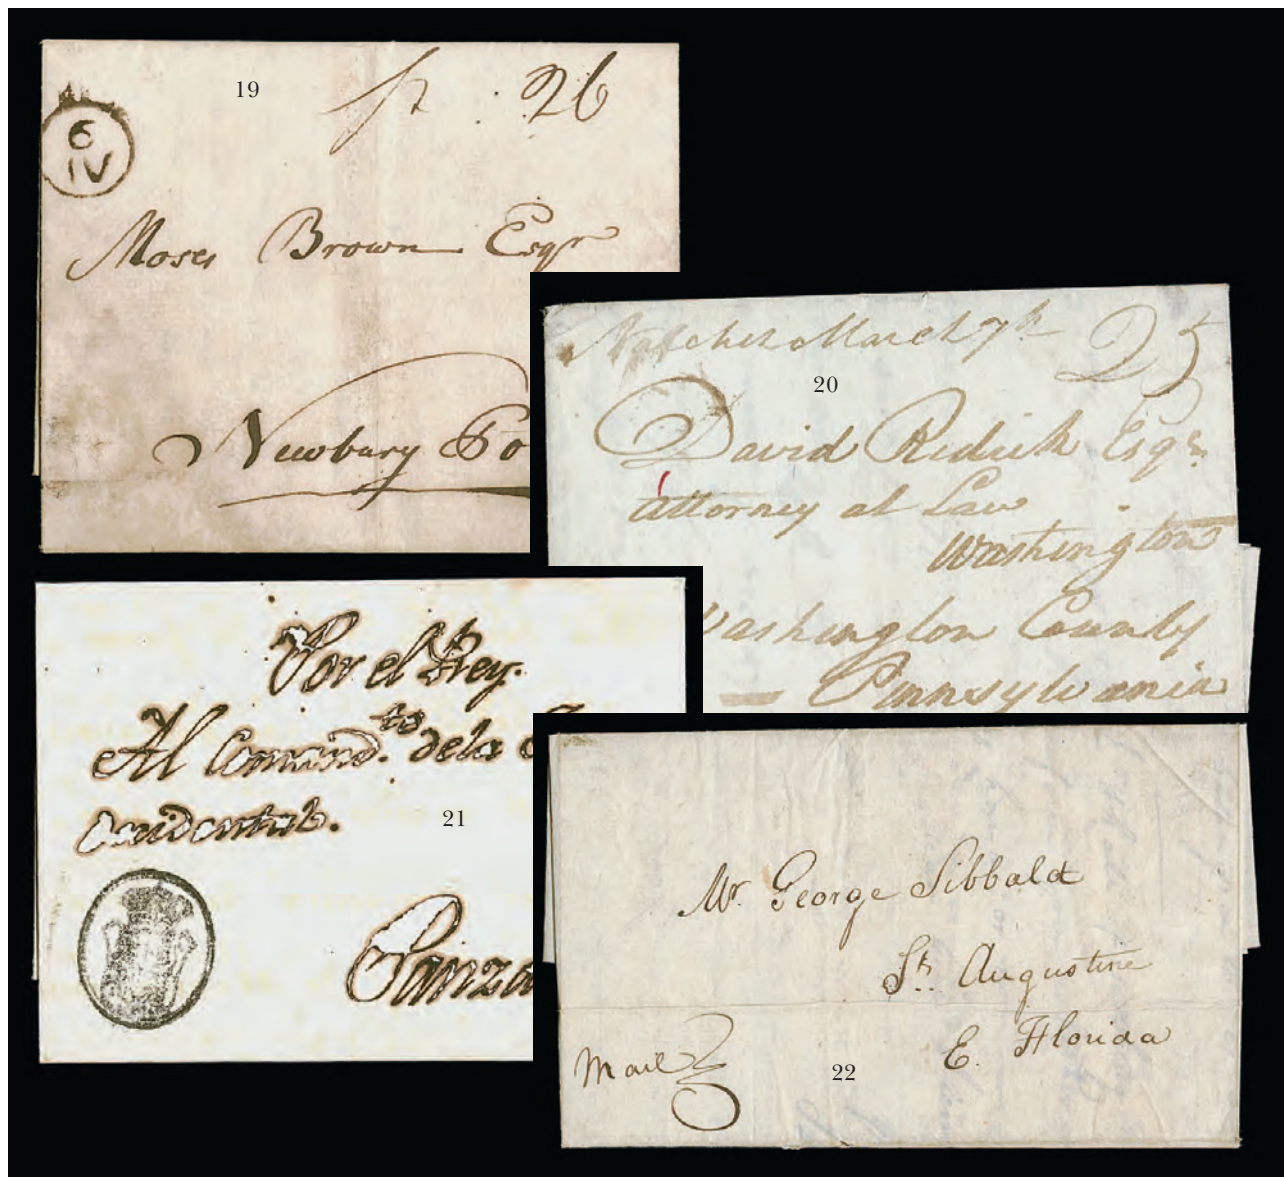 19
26
6
IV
Moses Brown Esqr
Newbury Po
Natchez March 7th 25
20
David Redick Esqr.
attorney at Law
Washington
Washington County
Pennsylvania
Por el Rey.
Al Comand.te de la
Occidental.
21
Panza
Mr. George Sibbald
St. Augustine
E. Florida
Mail
22